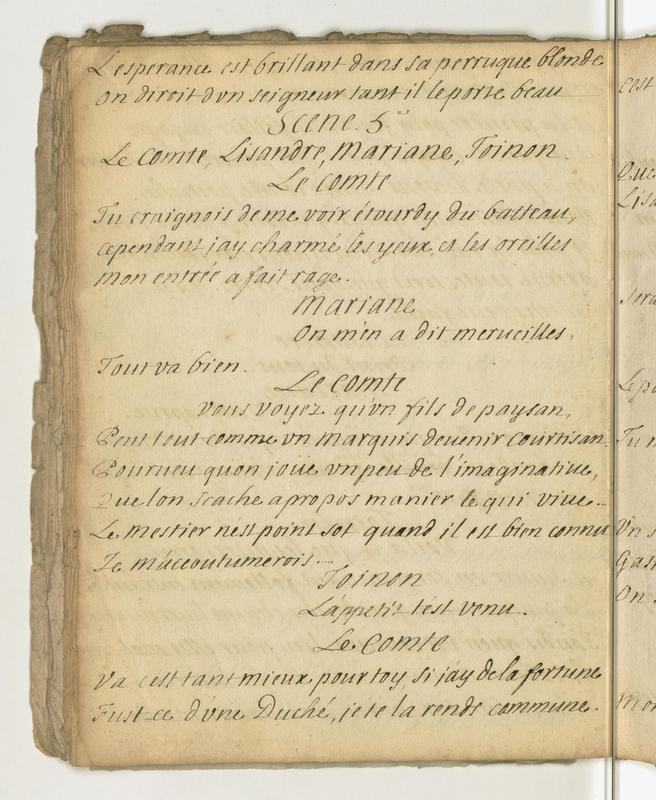 Lesperance est brillant dans sa perruque blonde
on diroit dvn seigneur tant il le porte beau
Scene. 5.e
Le Comte, Lisandre, Mariane, Toinon.
Le Comte
Tu craignois de me voir étourdy du batteau,
cependant jay charmé les yeux, et les oreilles
mon entrée a fait rage.
Mariane
on m'en a dit merueilles.
Tout va bien.
Le Comte
vous voyez qu'vn fils de paysan,
Peut tout comme vn marquis deuenir courtisan
Pourueu quon joüe vn peu de l'imaginatiue,
Que lon scache apropos manier le qui viue...
Le mestier nest point sot quand il est bien connu
Je m'acoutumerois....
Toinon
L'appetit t'est venu.
Le Comte
Va cest tant mieux pour toy, si j'ay de la fortune
Fust-ce d'vne Duché, je te la rends commune.
cest
Que
Lisa
sera
Le po
Tu n
Vn s
Gas
On
Mon